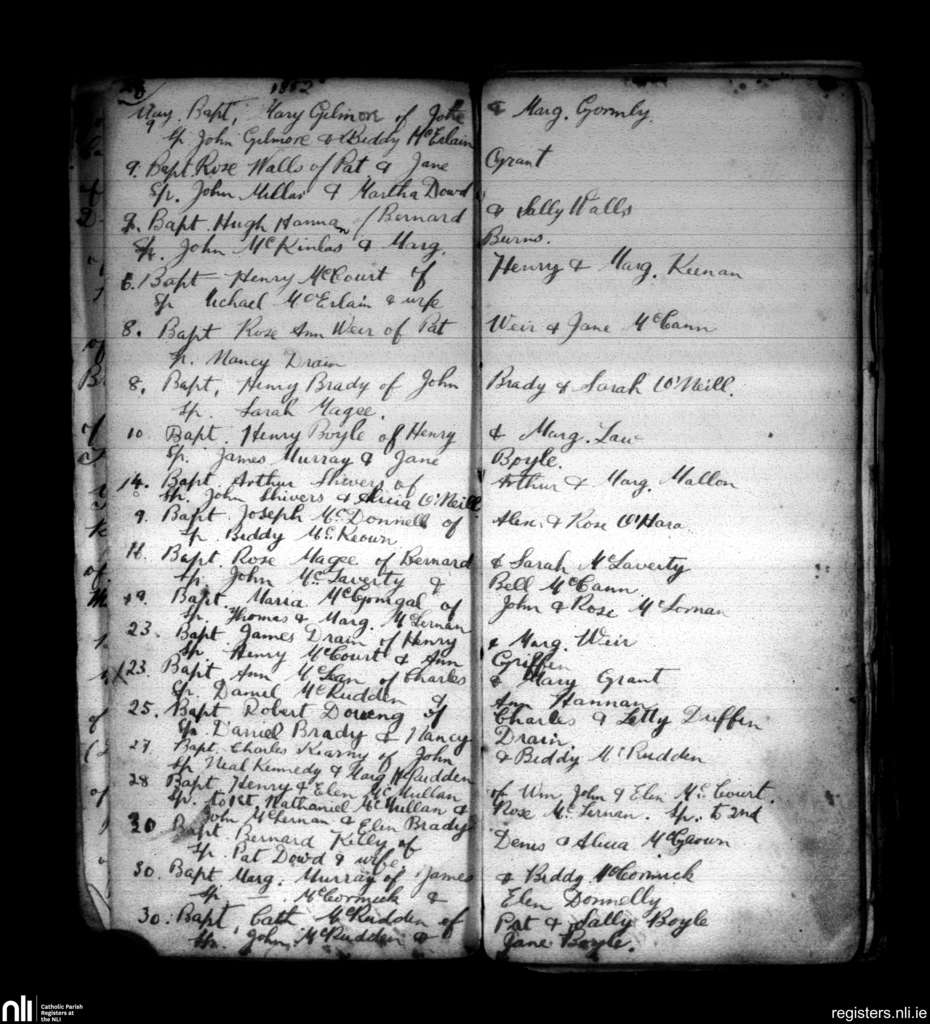 26 1852
May 9 Bapt, Mary Gilmore of John & Marg. Gormly.
Sp John Gilmore & Biddy McErlain
9. Bapt. Rose Walls of Pat & Jane Grant
Sp. John Millar & Martha Dowd
9. Bapt. Hugh Hannan / Bernard & Sally Walls
Sp. John McKinlas & Marg. Burns.
6. Bapt Henry McCourt of Henry & Marg. Keenan
Sp Michael McErlain & wife
8. Bapt Rose Ann Weir of Pat Weir & Jane McCann
Sp. Nancy Drain
8. Bapt. Henry Brady of John Brady & Sarah O'Neill.
Sp. Sarah Magee.
10. Bapt. Henry Boyle of Henry & Marg. Law
Sp. James Murray & Jane Boyle.
14. Bapt. Arthur Shivers of Arthur & Marg. Mallon
Sp. John Shivers & Alicia O'Neill
9. Bapt. Joseph McDonnell of Alex. & Rose O'Hara
Sp. Biddy McKeown
Bapt. Rose Magee of Bernard & Sarah McLaverty
Sp. John McLaverty & Bell McCann.
19. Bapt. Maria McGonigal of John & Rose McLornan
Sp. Thomas & Marg. McLernan
23. Bapt. James Drain of Henry & Marg. Weir
Sp Henry McCourt & Ann Griffen
23. Bapt Ann McLean of Charles & Mary Grant
Sp. Daniel McRudden & Ann Hannan
25. Bapt Robert Doweng of Charles & Letty Duffin
Sp. Daniel Brady & Nancy Drain
27. Bapt. Charles Kearny of John & Biddy McRudden
Sp Neal Kennedy & Marg McRudden
28 Bapt. Henry & Elen McMullan of Wm John & Elen McCourt.
Sp. to 1st, Nathaniel McMullan & Rose McLernan. Sp. to 2nd
John McLernan & Elen Brady
30 Bapt. Bernard Kelly of Denis & Alicia McGlown
Sp. Pat Dowd & wife
30. Bapt Marg. Murray of James & Biddy McCormick
Sp. — McCormick & Elen Donnelly
30. Bapt, Cath McRudden of Pat & Sally Boyle
Sp. John McRudden & Jane Boyle.
nli Catholic Parish
Registers at
the NLI
registers.nli.ie